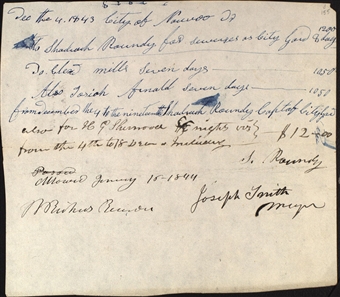 Dec the 4. 1843 City of Nauvoo Dr
to Shadrach Roundy for serveses as City Gard 8 days 1200
Do. Cleab mills Seven days 1050
Also Josiah Arnald Seven days 1050
from december the 4 to the nineteenth Shadrach Roundy Capt of City gard
also for H G Sherwood nights
from the 4th to 18 Inclusive $12.00
S. Roundy
Allowed January 15 - 1844
W Richards Recorder
Joseph Smith
Mayor